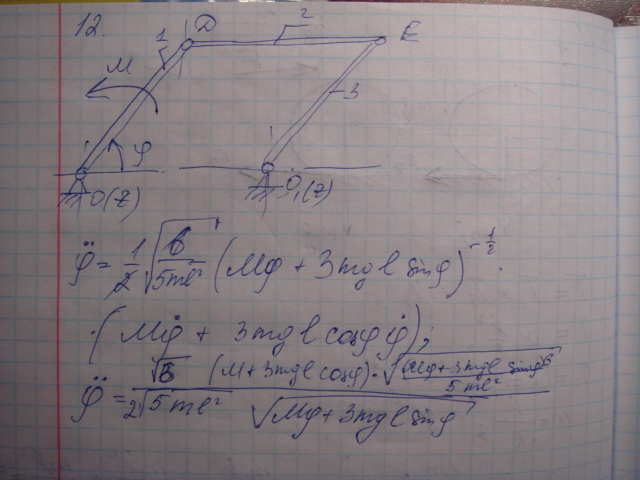 12.
1
D
2
E
M
3
φ
O(z)
O₁(z)
φ̈ = 1/2 √(6/5ml²) (Mφ + 3mgl sinφ)^(-1/2) ·
· (Mφ̇ + 3mgl cosφ φ̇);
φ̈ = √6 (M + 3mgl cosφ) · √((Mφ + 3mgl sinφ)6 / 5ml²) / 2√(5ml²) √(Mφ + 3mgl sinφ)